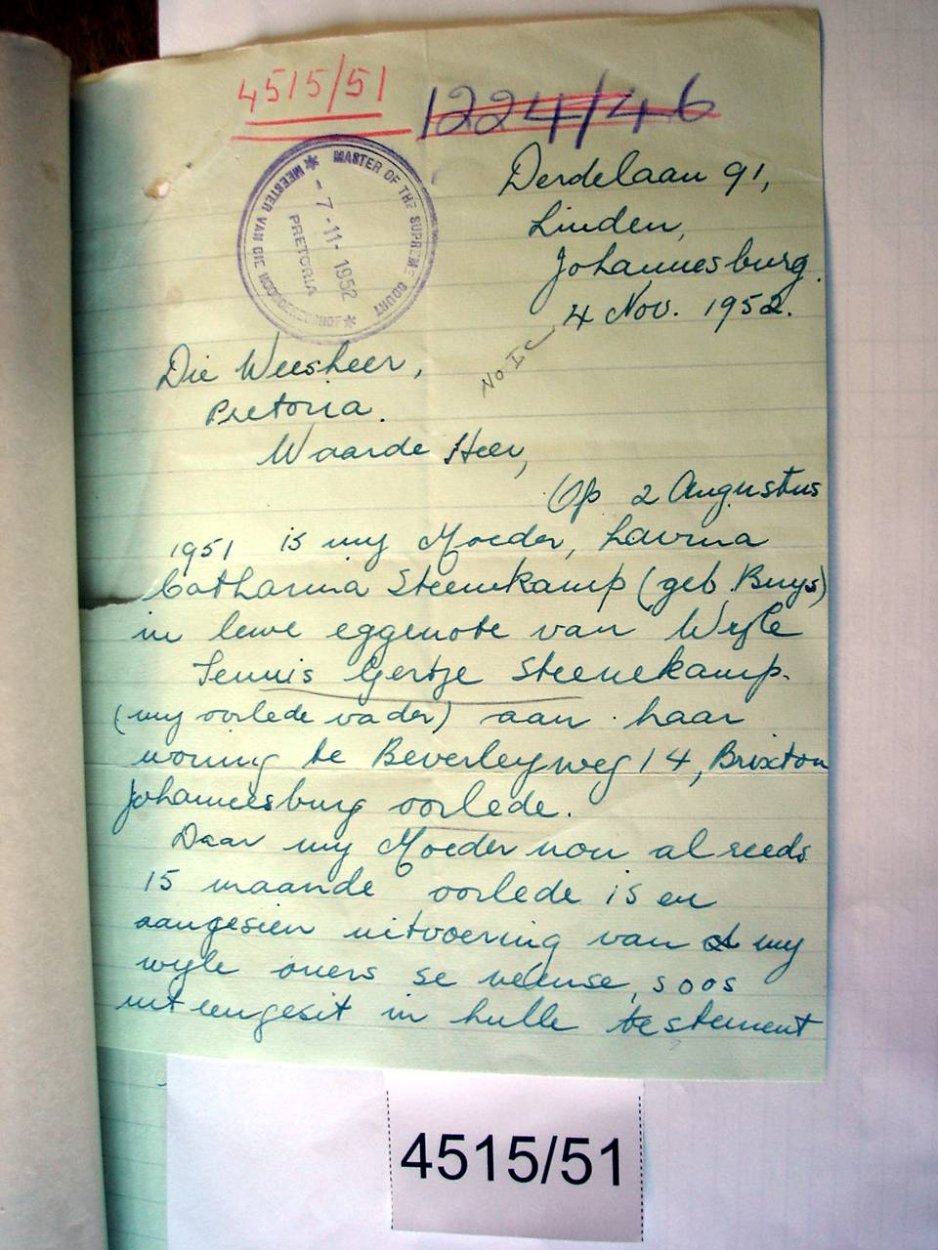 4515/51
1224/46
MASTER OF THE SUPREME COURT
MEESTER VAN DIE HOOGGEREGSHOF
-7-11-1952
PRETORIA
Derdelaan 91,
Linden,
Johannesburg.
4 Nov. 1952.
No I C
Die Weesheer,
Pretoria.
Waarde Heer,
Op 2 Augustus
1951 is my Moeder,
Catharina Steenekamp (geb. Buys)
in lewe eggenote van Wyle
Teunis Gertze Steenekamp.
(my oorlede vader) aan haar
woning te Beverleyweg 14, Brixton
Johannesburg oorlede.
Daar my Moeder nou al reeds
15 maande oorlede is en
aangesien uitvoering van my
wyle ouers se wense, soos
uiteengesit in hulle testement
4515/51